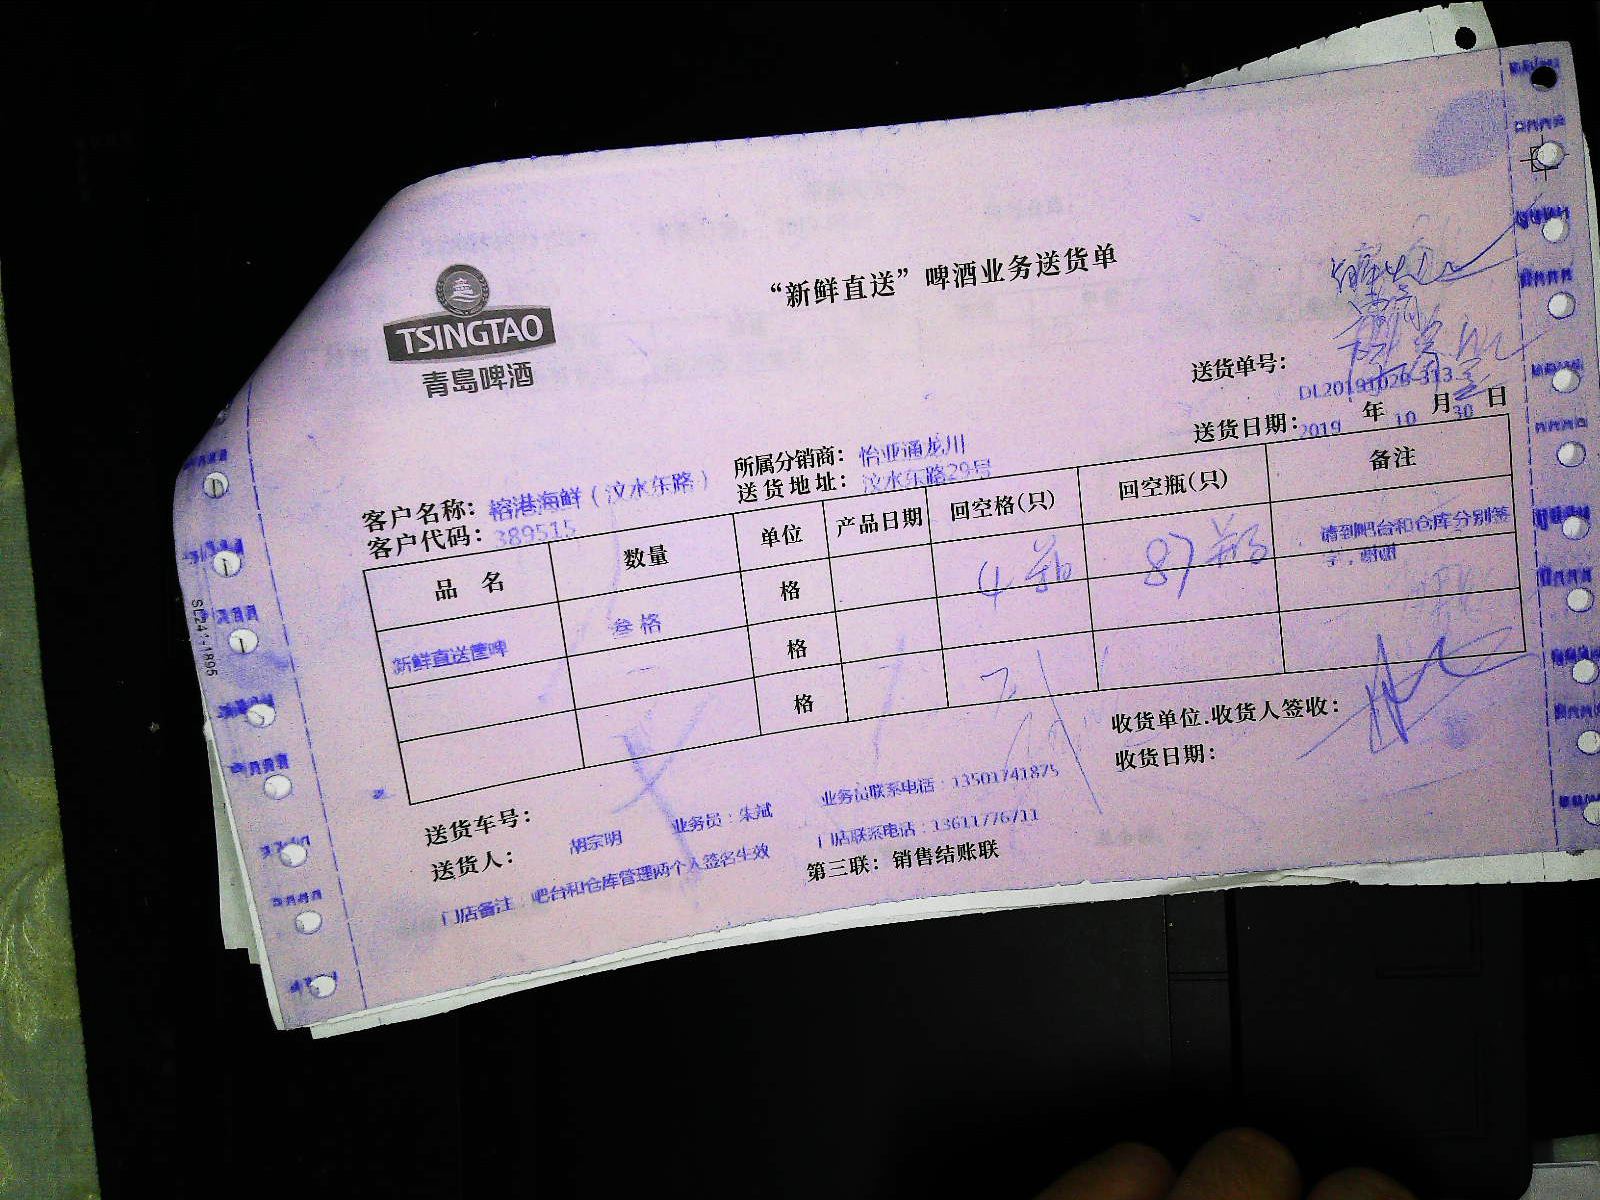 TSINGTAO
青岛啤酒
“新鲜直送”啤酒业务送货单
送货单号：
DL20191029-313
送货日期：2019 年 10 月 30 日
客户名称：榕港海鲜（汶水东路） 所属分销商：怡亚通龙川
客户代码：389515 送货地址：汶水东路29号
品 名 数量 单位 产品日期 回空格(只) 回空瓶(只) 备注
新鲜直送筐啤 叁格 格 4 87 瓶 请到吧台和仓库分别签字，谢谢
格
格
收货单位.收货人签收：
收货日期：
送货车号：
送货人：胡宗明 业务员：朱斌 业务员联系电话：13501741875
门店联系电话：13611776711
门店备注 吧台和仓库管理两个人签名生效
第三联：销售结账联
SL241-1895